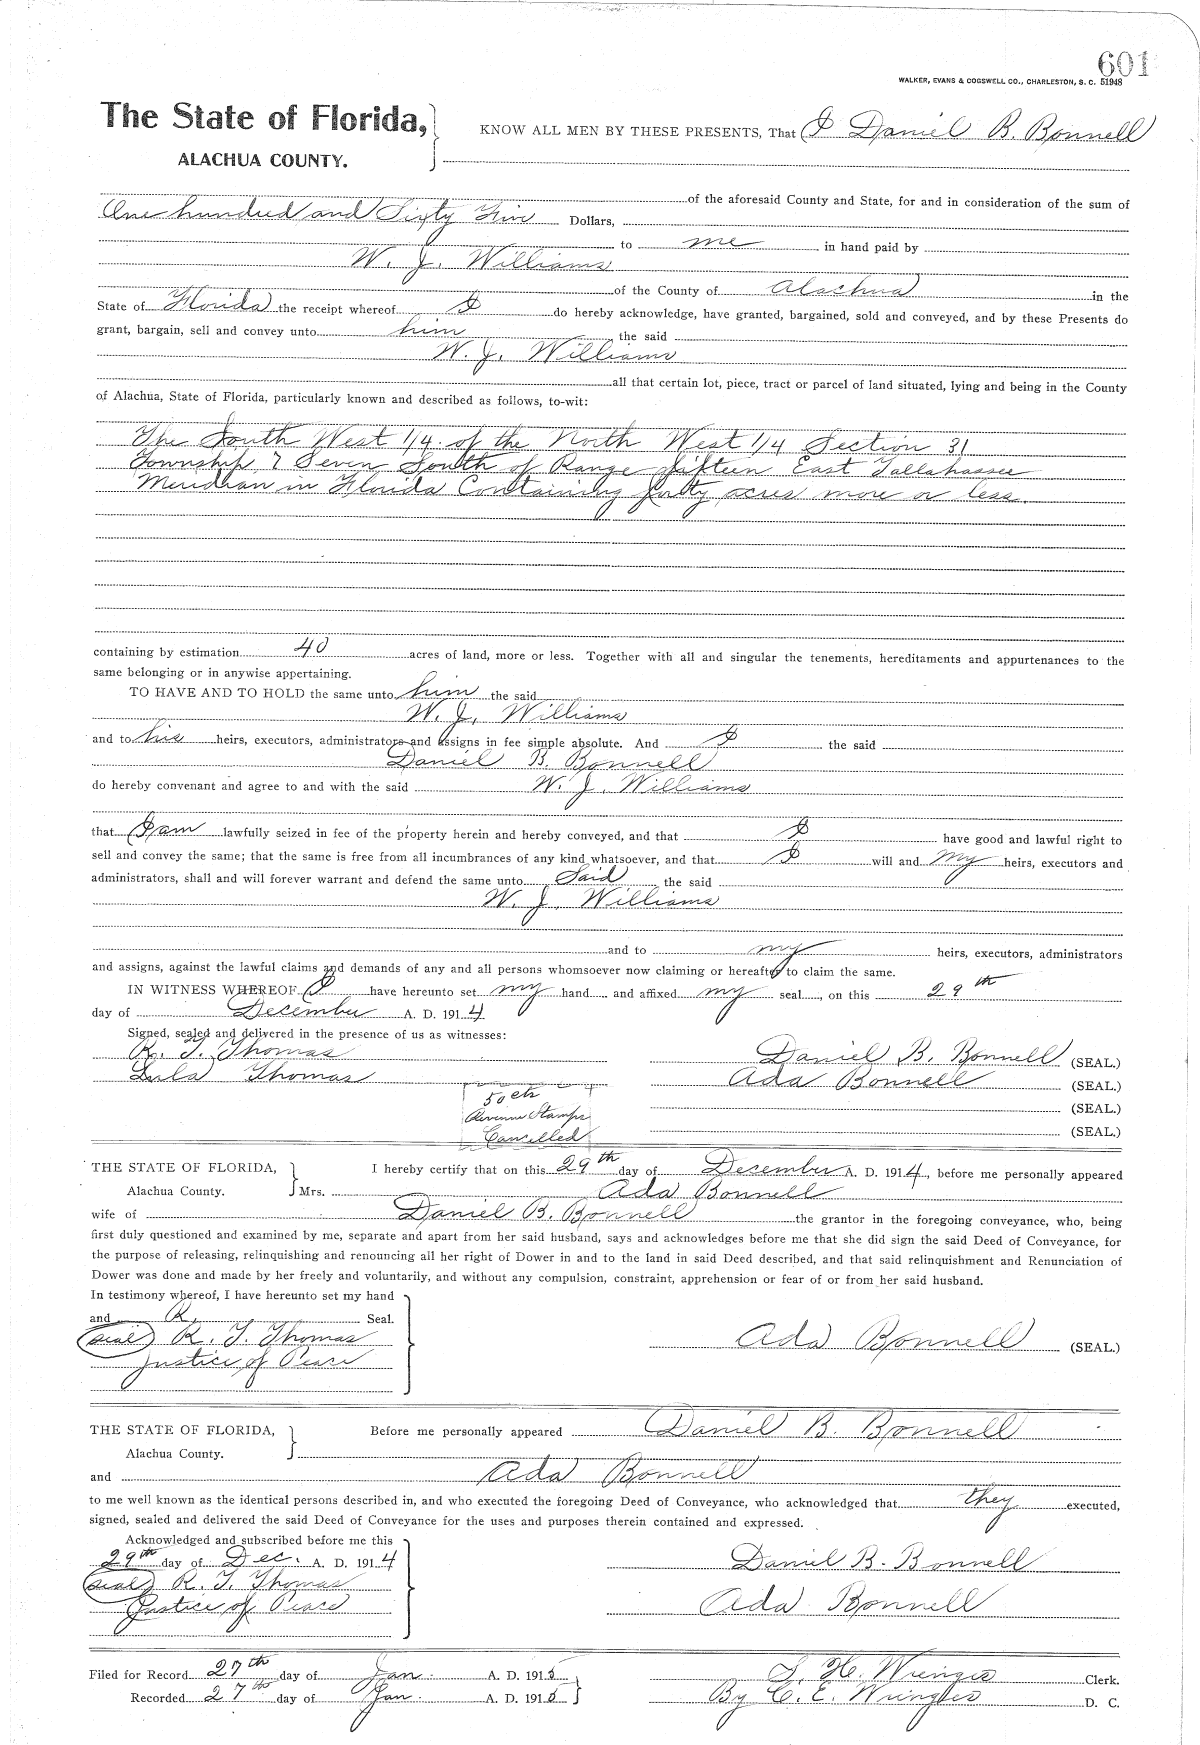 601
WALKER, EVANS & COGSWELL CO., CHARLESTON, S. C. 51948
The State of Florida,
ALACHUA COUNTY.
KNOW ALL MEN BY THESE PRESENTS, That I Daniel B. Bonnell
of the aforesaid County and State, for and in consideration of the sum of
One hundred and Sixty Five Dollars,
to me in hand paid by
W. J. Williams
of the County of Alachua in the
State of Florida the receipt whereof I do hereby acknowledge, have granted, bargained, sold and conveyed, and by these Presents do
grant, bargain, sell and convey unto him the said
W. J. Williams
all that certain lot, piece, tract or parcel of land situated, lying and being in the County
of Alachua, State of Florida, particularly known and described as follows, to-wit:
The South West 1/4 of the North West 1/4 Section 31
Township 7 Seven South of Range fifteen East Tallahassee
Meridian in Florida Containing forty acres more or less.
containing by estimation 40 acres of land, more or less. Together with all and singular the tenements, hereditaments and appurtenances to the
same belonging or in anywise appertaining.
TO HAVE AND TO HOLD the same unto him the said
W. J. Williams
and to his heirs, executors, administrators and assigns in fee simple absolute. And I the said
Daniel B. Bonnell
do hereby convenant and agree to and with the said W. J. Williams
that I am lawfully seized in fee of the property herein and hereby conveyed, and that I have good and lawful right to
sell and convey the same; that the same is free from all incumbrances of any kind whatsoever, and that I will and my heirs, executors and
administrators, shall and will forever warrant and defend the same unto Said the said
W. J. Williams
and to my heirs, executors, administrators
and assigns, against the lawful claims and demands of any and all persons whomsoever now claiming or hereafter to claim the same.
IN WITNESS WHEREOF I have hereunto set my hand and affixed my seal, on this 29th
day of December A. D. 1914
Signed, sealed and delivered in the presence of us as witnesses:
R. T. Thomas
Lula Thomas
Daniel B. Bonnell (SEAL.)
Ada Bonnell (SEAL.)
(SEAL.)
(SEAL.)
50 cts
Revenue Stamps
Cancelled
THE STATE OF FLORIDA,
Alachua County.
I hereby certify that on this 29th day of December A. D. 1914, before me personally appeared
Mrs. Ada Bonnell
wife of Daniel B. Bonnell the grantor in the foregoing conveyance, who, being
first duly questioned and examined by me, separate and apart from her said husband, says and acknowledges before me that she did sign the said Deed of Conveyance, for
the purpose of releasing, relinquishing and renouncing all her right of Dower in and to the land in said Deed described, and that said relinquishment and Renunciation of
Dower was done and made by her freely and voluntarily, and without any compulsion, constraint, apprehension or fear of or from her said husband.
In testimony whereof, I have hereunto set my hand
and R. Seal.
(seal) R. T. Thomas
Justice of Peace
Ada Bonnell (SEAL.)
THE STATE OF FLORIDA,
Alachua County.
Before me personally appeared Daniel B. Bonnell
and Ada Bonnell
to me well known as the identical persons described in, and who executed the foregoing Deed of Conveyance, who acknowledged that they executed,
signed, sealed and delivered the said Deed of Conveyance for the uses and purposes therein contained and expressed.
Acknowledged and subscribed before me this
29th day of Dec. A. D. 1914
(seal) R. T. Thomas
Justice of Peace
Daniel B. Bonnell
Ada Bonnell
Filed for Record 27th day of Jan. A. D. 1915
Recorded 27th day of Jan. A. D. 1915
S. H. Wienges Clerk.
By C. E. Wienges D. C.